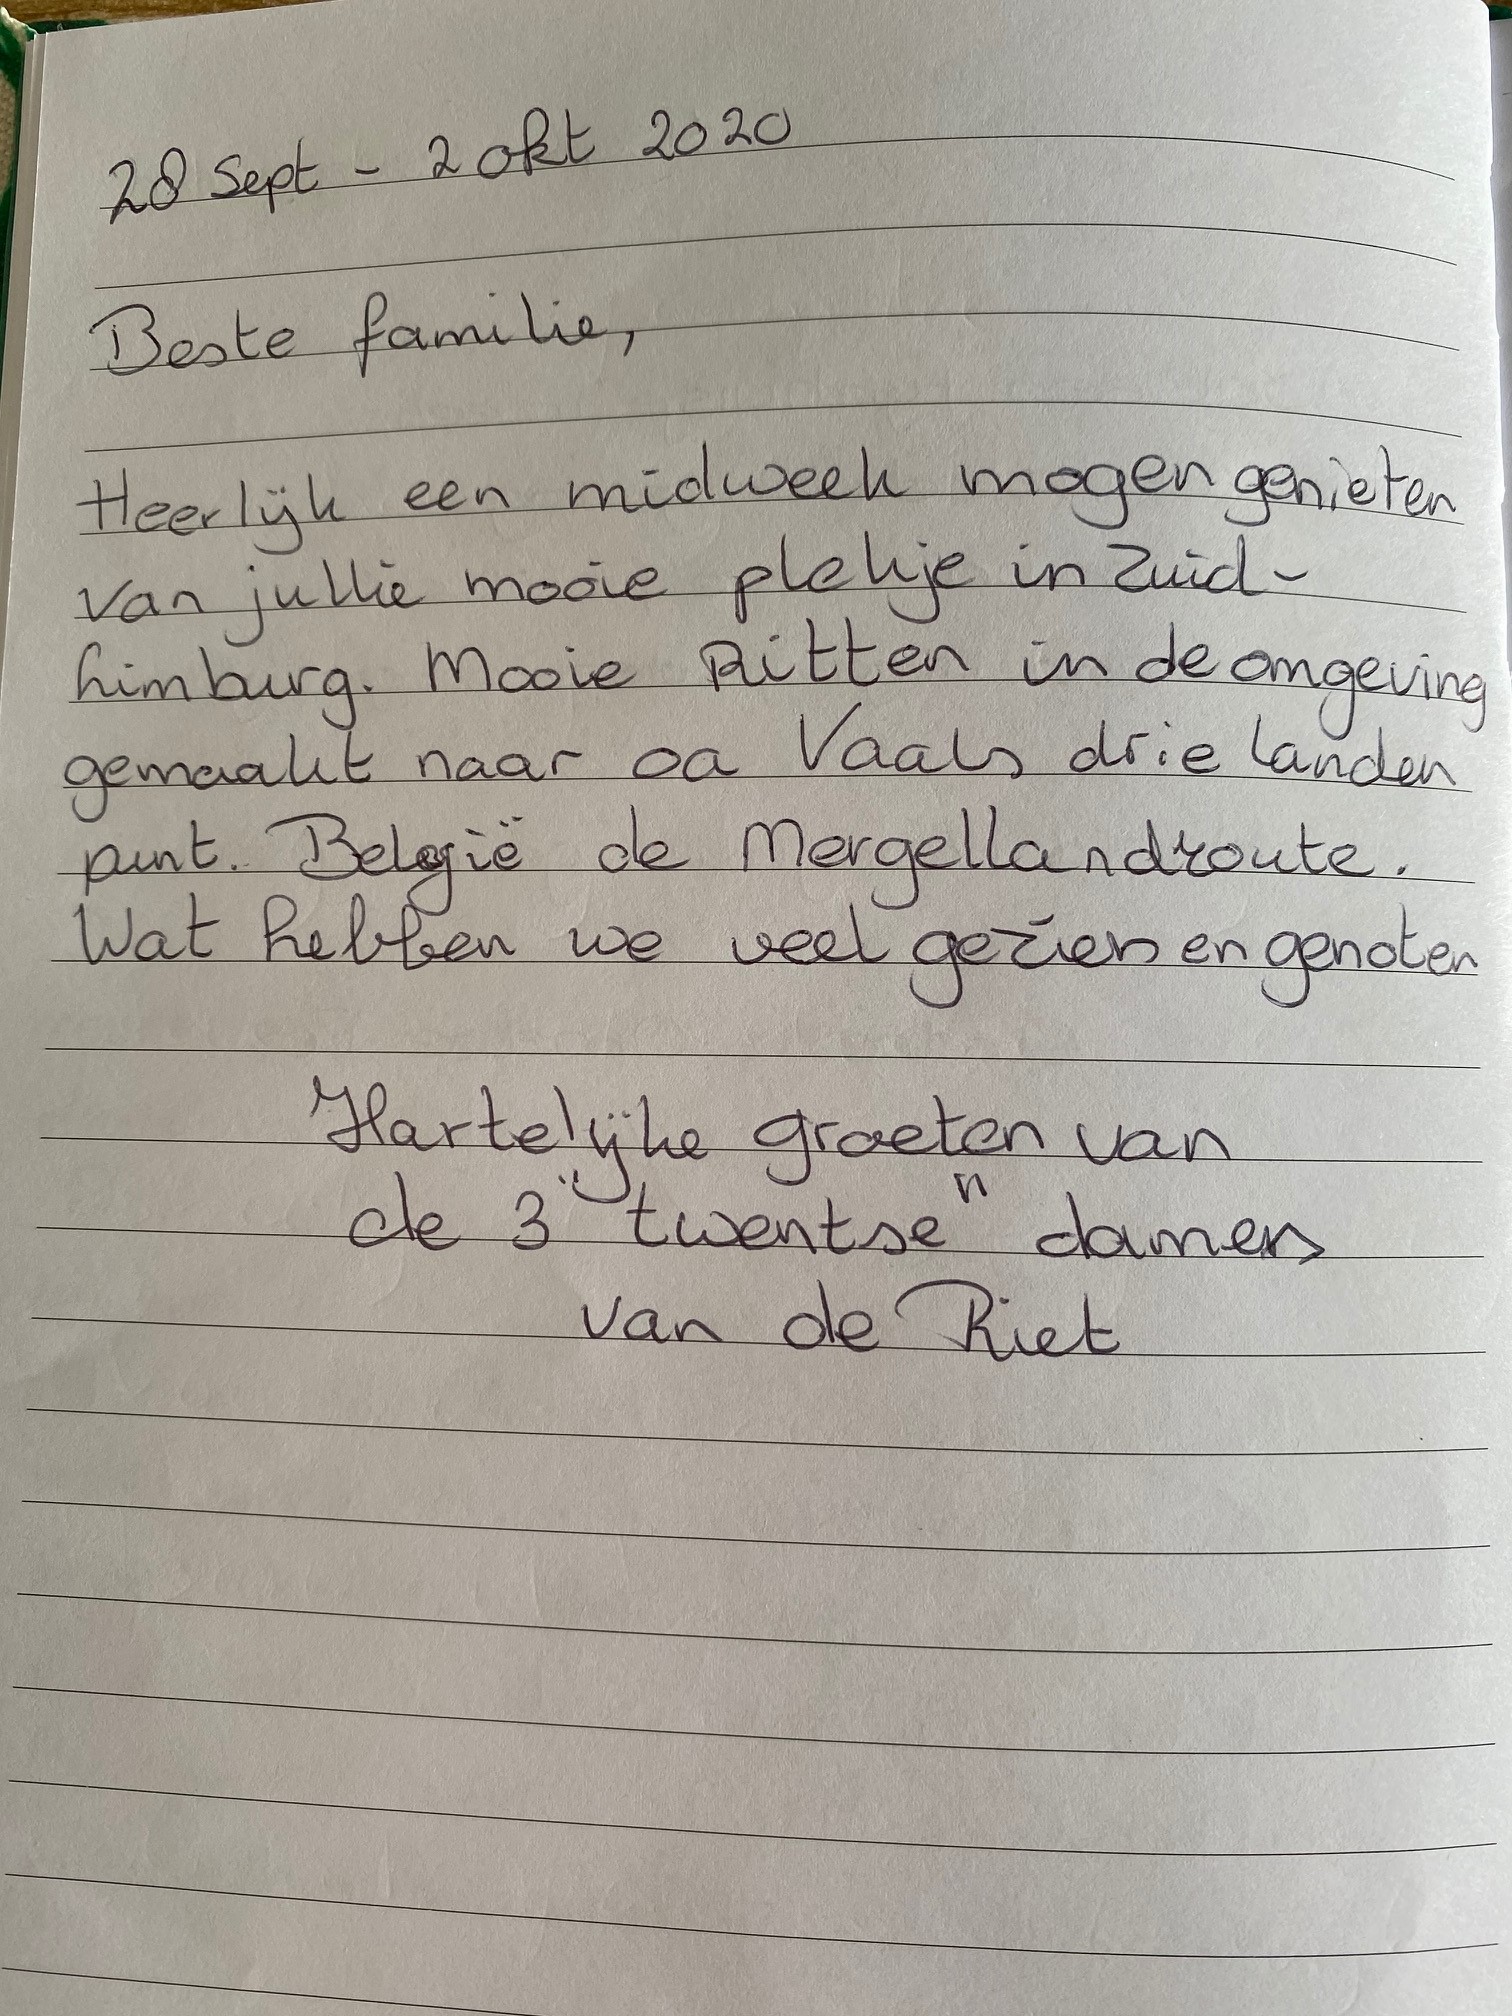 28 Sept - 2 okt 2020
Beste familie,
Heerlijk een midweek mogen genieten
van jullie mooie plekje in Zuid-
Limburg. Mooie Ritten in de omgeving
gemaakt naar oa Vaals drie landen
punt. België de Mergellandroute.
Wat hebben we veel gezien en genoten
Hartelijke groeten van
de 3 "twentse" dames
van de Riet